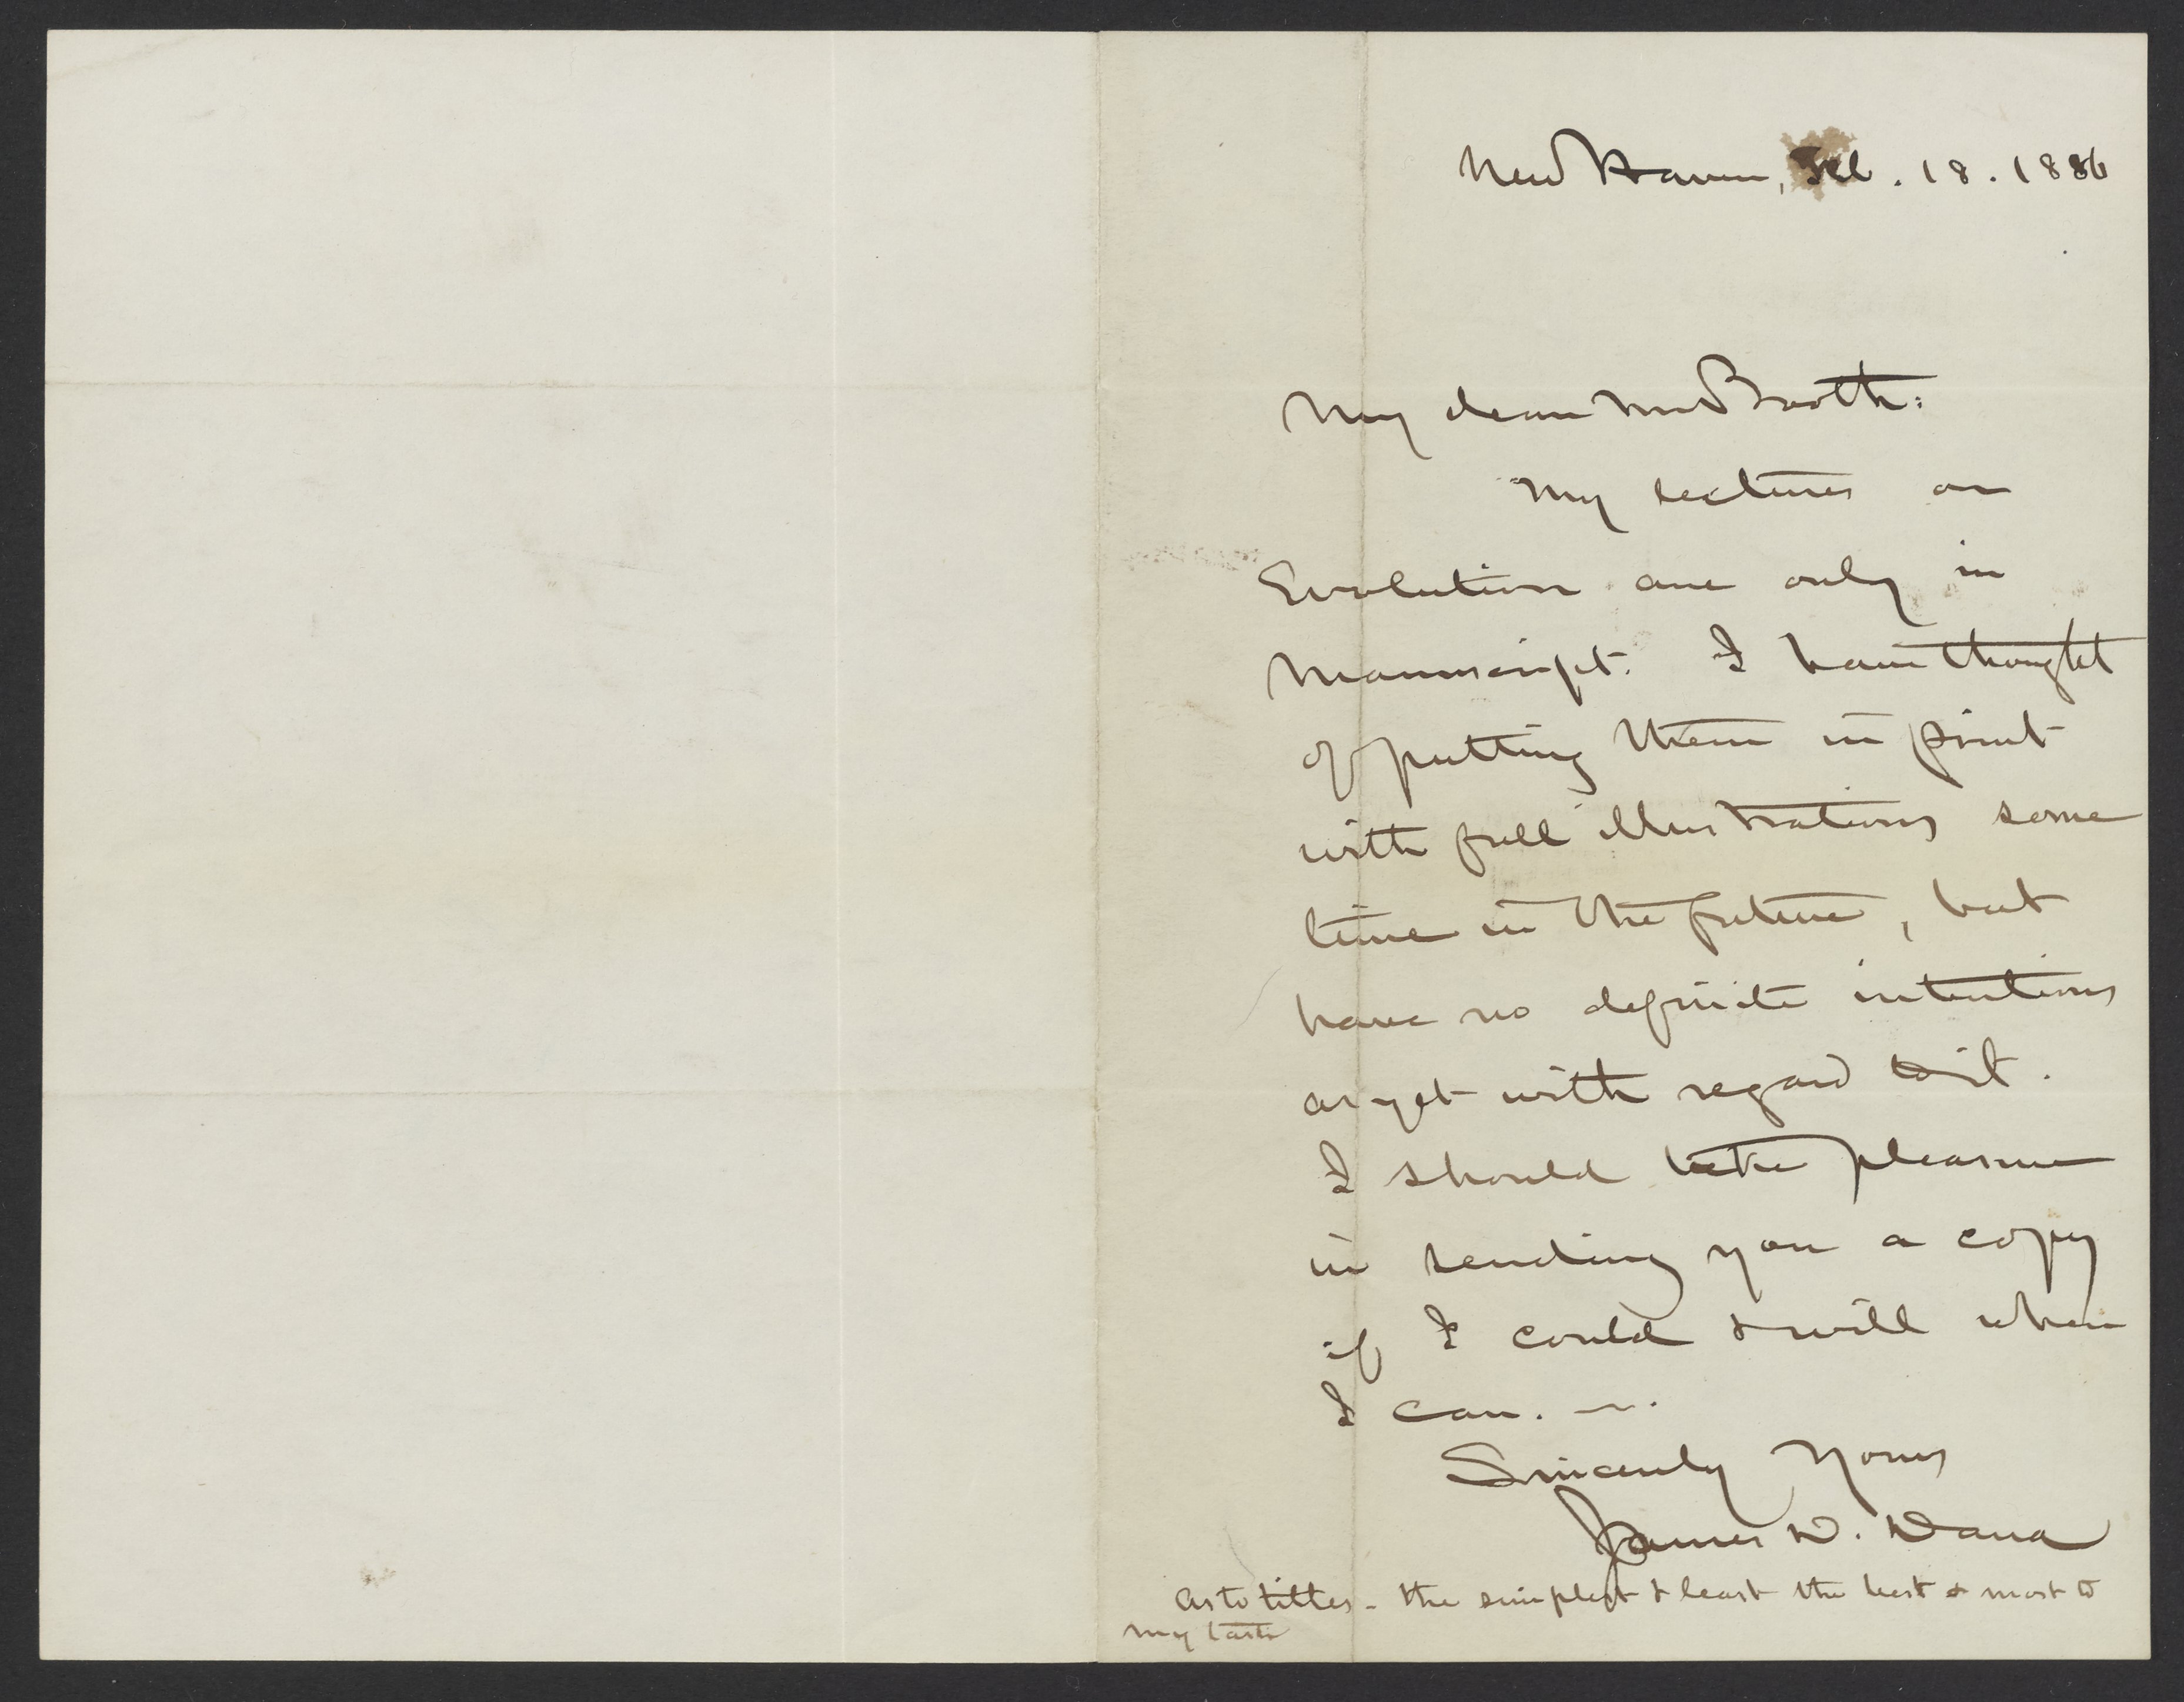 New Haven, Feb. 18. 1886
My dear Mr Booth:
My lectures on
Evolution are only in
Manuscript. I have thought
of putting them in print
with full illustrations some
time in the future, but
have no definite intentions
as yet with regard to it.
I should take pleasure
in sending you a copy
if I could & will when
I can. —.
Sincerely Yours
James D. Dana
As to titles - the simplest & least the best & most to
my taste